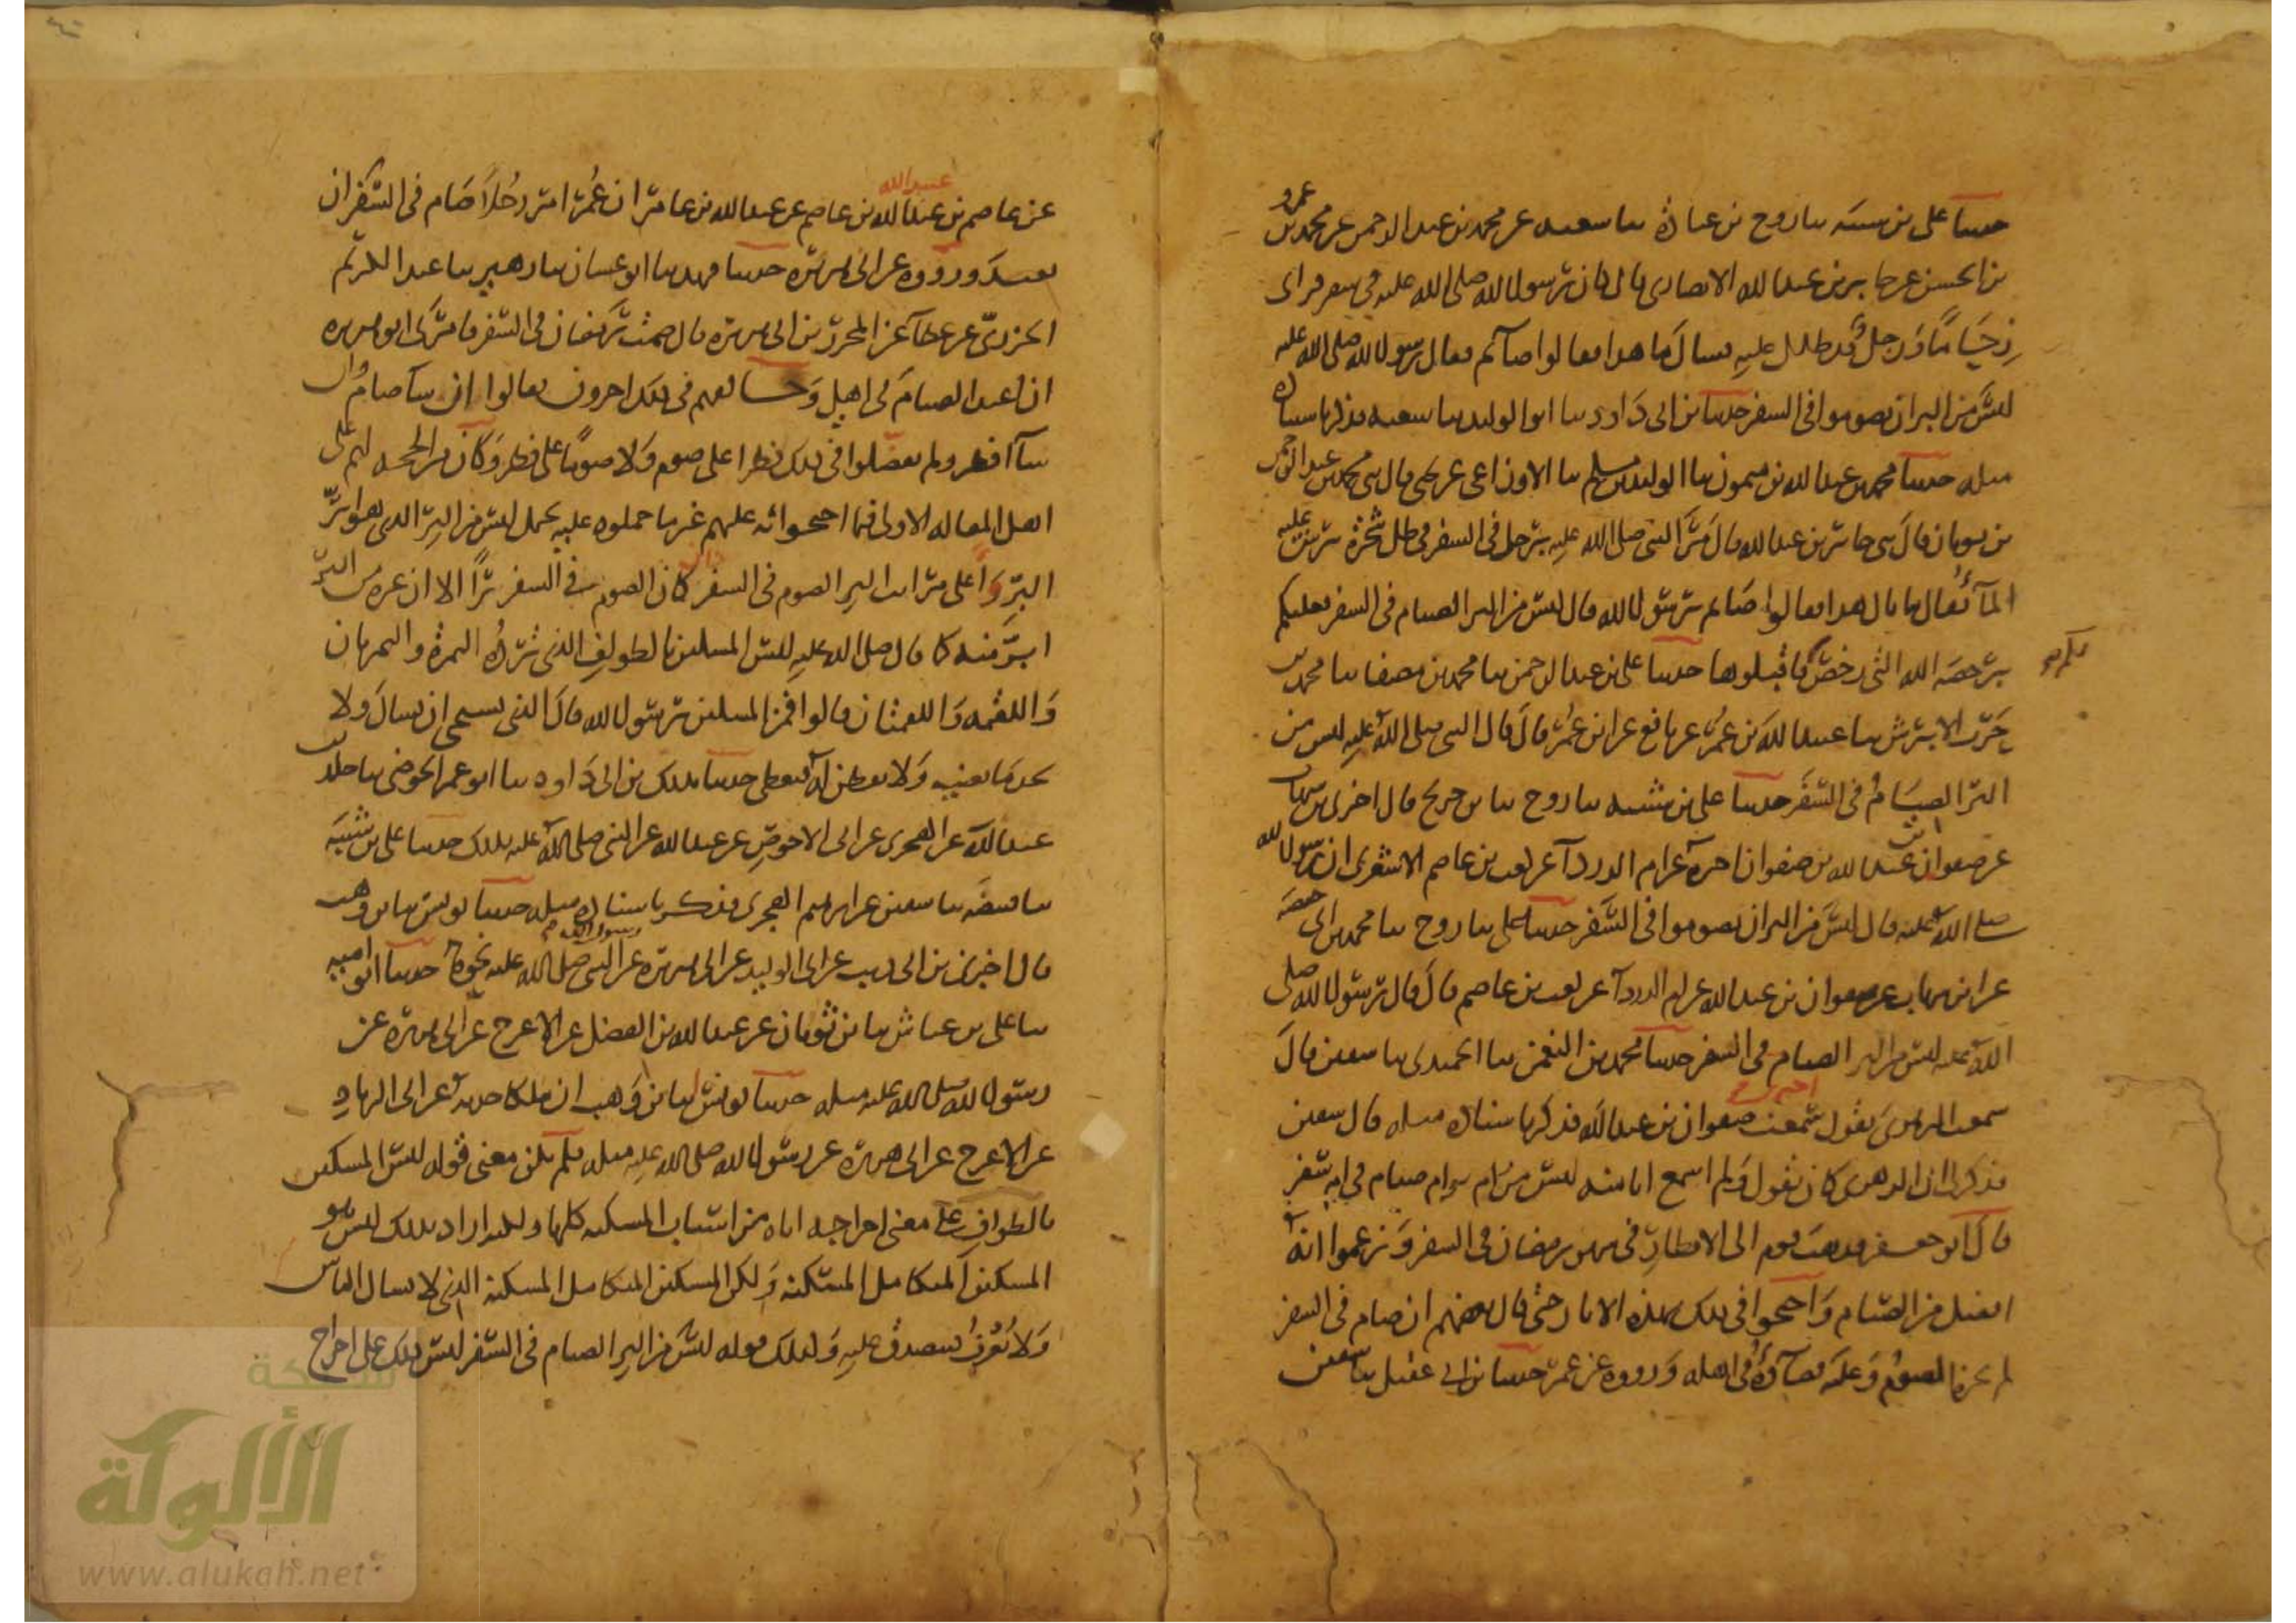 حدثنا علي بن شيبة ثنا روح بن عبادة ثنا شعبة عن محمد بن عبد الرحمن عن محمد بن عمرو
بن الحسن عن جابر بن عبد الله الانصاري قال كان رسول الله صلى الله عليه في سفر فراى
زحاما ورجل قد ظلل عليه فسال ما هذا فقالوا صائم فقال رسول الله صلى الله عليه
ليس من البر ان تصوموا في السفر حدثنا بن ابي داود ثنا ابو الوليد ثنا شعبة فذكر باسناده
مثله حدثنا محمد بن عبد الله بن ميمون ثنا الوليد بن مسلم ثنا الاوزاعي عن يحيى قال ثني محمد بن عبد الرحمن
بن ثوبان قال ثني جابر بن عبد الله قال مر النبي صلى الله عليه برجل في السفر في ظل شجرة يرش عليه
الماء فقال ما بال هذا فقالوا صائم يا رسول الله قال ليس من البر الصيام في السفر فعليكم
برخصة الله التي رخص لكم فاقبلوها حدثنا علي بن عبد الرحمن ثنا محمد بن مصفا ثنا محمد بن
حرب الابرش ثنا عبيد الله بن عمر عن نافع عن ابن عمر قال قال النبي صلى الله عليه ليس من
البر الصيام في السفر حدثنا علي بن شيبة ثنا روح ثنا بن جريج قال اخبرني بن شهاب
عن صفوان بن عبد الله بن صفوان اخبره عن ام الدردآ عن كعب بن عاصم الاشعري ان رسول الله
صلى الله عليه قال ليس من البر ان تصوموا في السفر حدثنا علي ثنا روح ثنا محمد بن ابي حفصة
عن ابن شهاب عن صفوان بن عبد الله عن ام الدردآ عن كعب بن عاصم قال قال رسول الله صلى
الله عليه ليس من البر الصيام في السفر حدثنا محمد بن النعمن ثنا الحميدي ثنا سفين قال
سمعت الزهري يقول اخبرني صفوان بن عبد الله فذكر باسناده مثله قال سفين
فذكر لي ان الزهري كان يقول ولم اسمع انا منه ليس من ام بر ام صيام في ام سفر
قال ابو جعفر فذهب قوم الى الافطار في شهر رمضان في السفر وزعموا انه
افضل من الصيام واحتجوا في ذلك بهذه الاثار حتى قال بعضهم ان صام في السفر
لم يجزه الصوم وعليه قضاؤه في اهله ورووه عن عمر حدثنا بن ابي عقيل ثنا سفين
عن عاصم بن عبيد الله بن عاصم عن عبد الله بن عامر ان عمر امر رجلا صام في السفر ان
يعيد ورووه عن ابي هريرة حدثنا فهد ثنا ابو غسان ثنا زهير ثنا عبد الكريم
الجزري عن عطآ عن المحرر بن ابي هريرة قال صمت رمضان في السفر فامرني ابو هريرة
ان اعيد الصيام في اهلي وخالفهم في ذلك اخرون فقالوا ان شآ صام وان
شآ افطر ولم يفضلوا في ذلك فطرا على صوم ولا صوما على فطر وكان من الحجة لهم على
اهل المقالة الاولى فيما احتجوا به عليهم غير ما حملوه عليه يحمل ليس من البر الذي هو ابر
البر واعلى مراتب البر الصوم في السفر وان كان الصوم في السفر برا الا ان غيره من البر
ابر منه كما قال صلى الله عليه ليس المسكين بالطواف الذي ترده التمرة والتمرتان
واللقمة واللقمتان قالوا فمن المسكين يا رسول الله قال الذي يستحي ان يسال ولا
يجد ما يغنيه ولا يفطن له فيعطى حدثنا بذلك بن ابي داود ثنا ابو عمر الحوضي ثنا خالد بن
عبد الله عن الهجري عن ابي الاحوص عن عبد الله عن النبي صلى الله عليه بذلك حدثنا علي بن شيبة
ثنا قبيصة ثنا سفين عن ابراهيم الهجري فذكر باسناده مثله حدثنا يونس ثنا بن وهب
قال اخبرني بن ابي ذيب عن ابي الوليد عن ابي هريرة عن رسول الله صلى الله عليه نحوه حدثنا ابو امية
ثنا علي بن عياش ثنا بن ثوبان عن عبد الله بن الفضل عن الاعرج عن ابي هريرة عن
رسول الله صلى الله عليه مثله حدثنا يونس ثنا بن وهب ان ملكا حدثه عن ابي الزناد
عن الاعرج عن ابي هريرة عن رسول الله صلى الله عليه مثله فلم يكن معنى قوله ليس المسكين
بالطواف على معنى اخراجه اياه من اسباب المسكنة كلها ولكنه اراد بذلك ليس هو
المسكين المتكامل المسكنة ولكن المسكين المتكامل المسكنة الذي لا يسال الناس
ولا يعرف فيتصدق عليه وكذلك قوله ليس من البر الصيام في السفر ليس ذلك على اخراج
شبكة
الألوكة
www.alukah.net